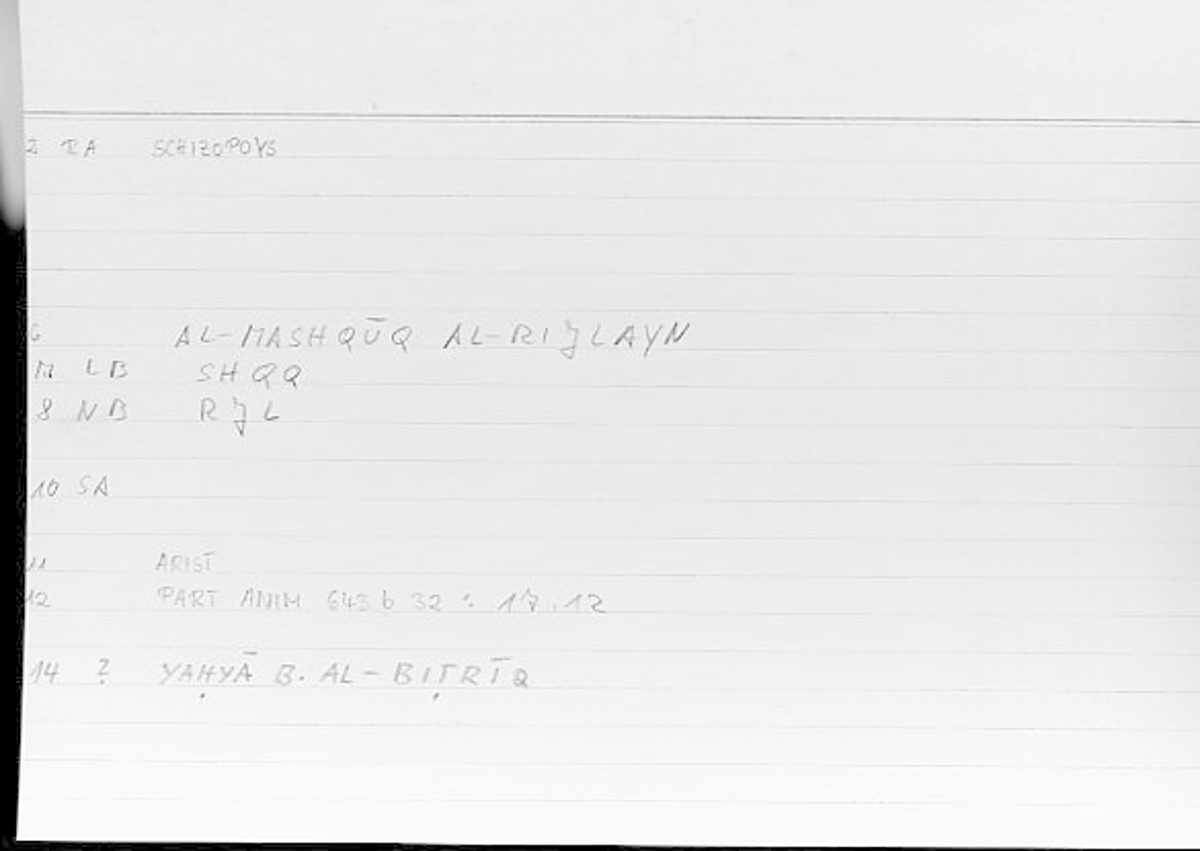 2 RA SCHIZOPOYS
6 AL-MASHQŪQ AL-RIJLAYN
LB SHQQ
8 NB RJL
10 SA
11 ARIST
12 PART ANIM 643 b 32 : 17.12
14 ? YAḤYĀ B. AL-BIṬRĪQ